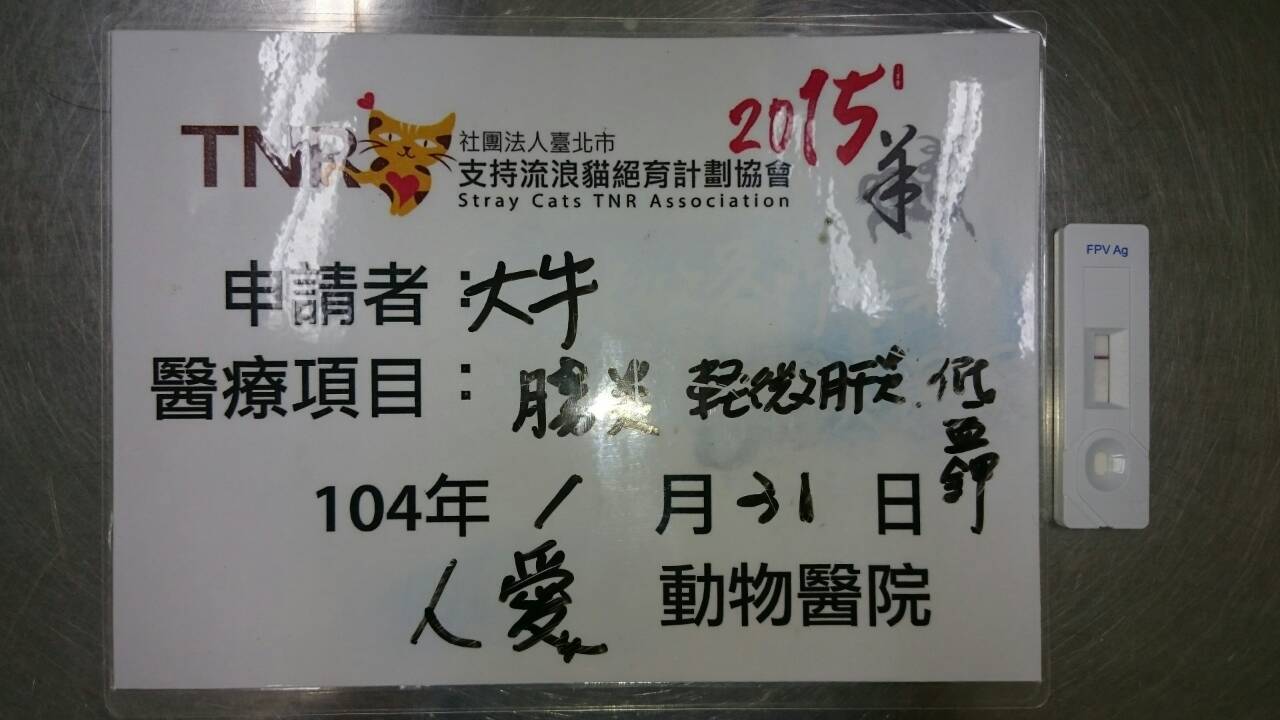 TNR
社團法人臺北市
支持流浪貓絕育計劃協會
Stray Cats TNR Association
2015
羊
FPV Ag
申請者：大牛
醫療項目：腸炎 輕微肝炎.低血鉀
104年1月31日
人愛動物醫院